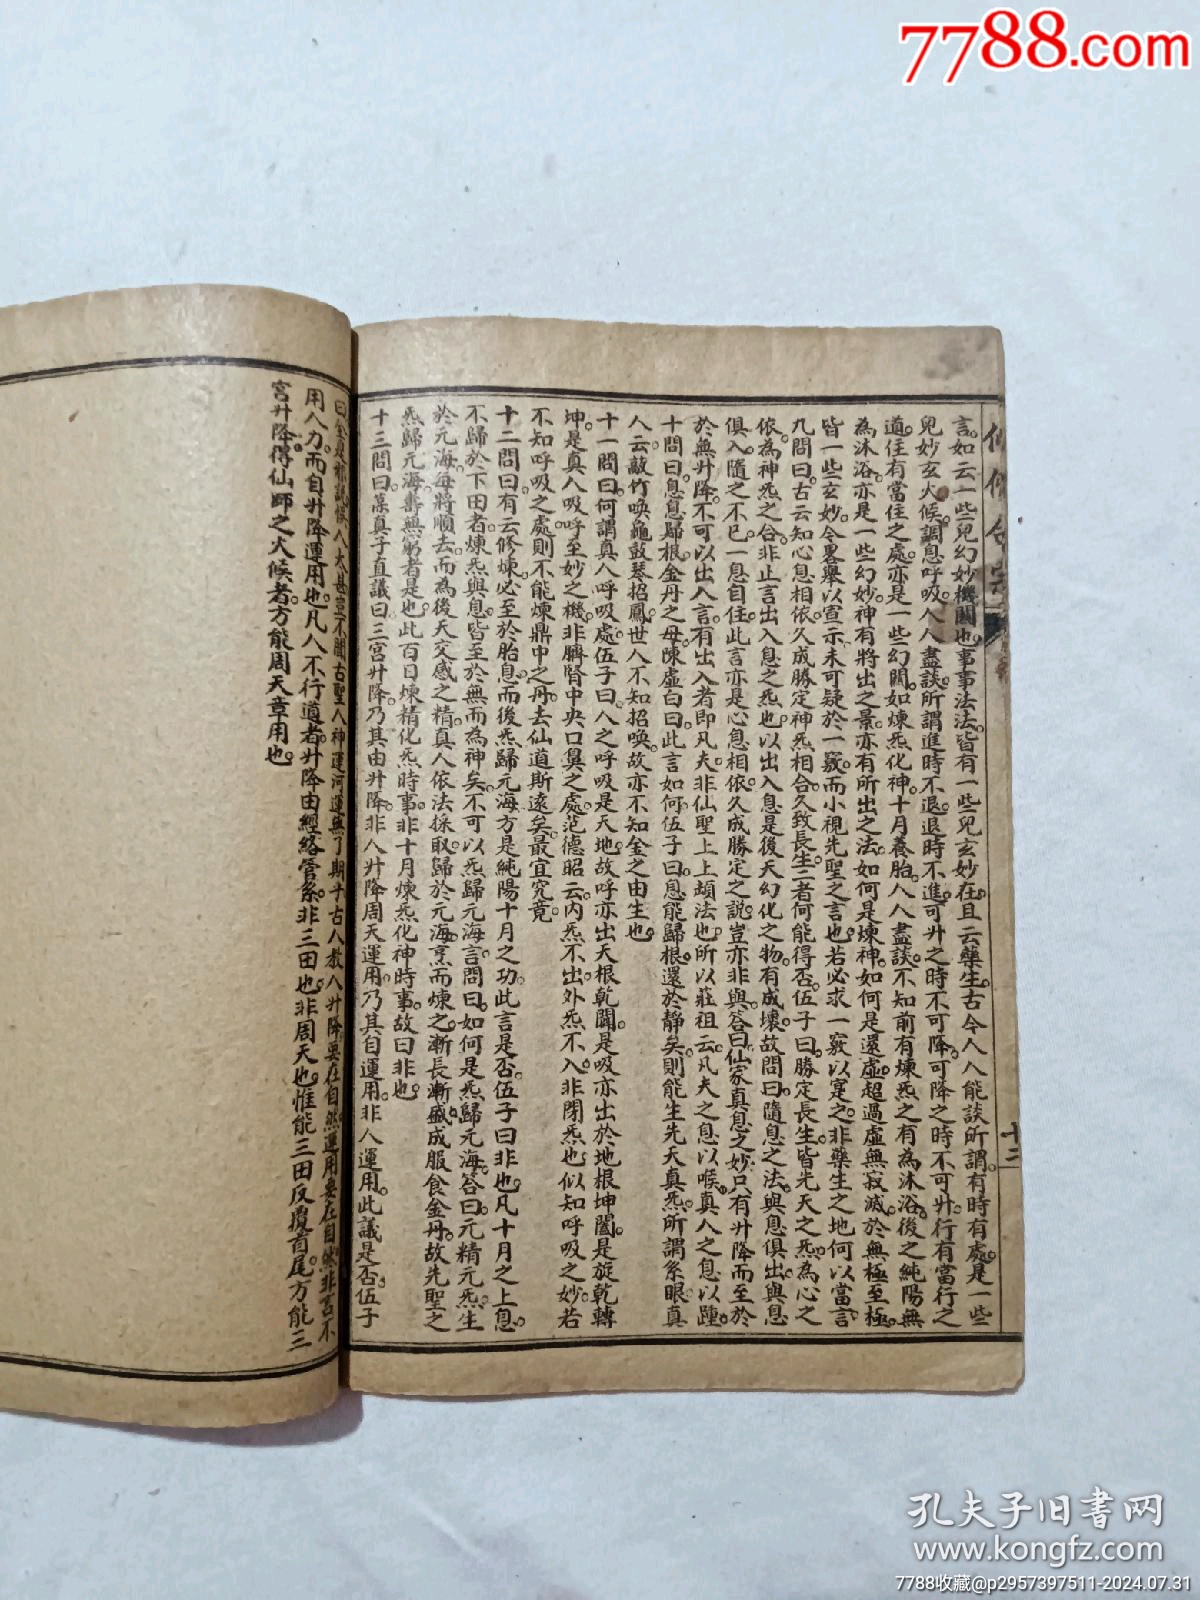 7788.com
仙佛合宗
十二
言如云一些兒幻妙機關也事事法法皆有一些兒玄妙在且云藥生古今人人能談所謂有時有處是一些
兒妙玄火候調息呼吸人人盡談所謂進時不退退時不進可升之時不可降可降之時不可升行有當行之
道住有當住之處亦是一些幻關如煉炁化神十月養胎人人盡談不知前有煉炁之有為沐浴後之純陽無
為沐浴亦是一些幻妙神有將出之景亦有所出之法如何是煉神如何是還虛超過虛無寂滅於無極至極
皆一些玄妙今畧舉以宣示未可疑於一竅而小視先聖之言也若必求一竅以寔之非藥生之地何以當言
九問曰古云知心息相依久成勝定神炁相合久致長生二者何能得否伍子曰勝定長生皆先天之炁為心之
依為神炁之合非止言出入息之炁也以出入息是後天幻化之物有成壞故問曰隨息之法與息俱出與息
俱入隨之不已一息自住此言亦是心息相依久成勝定之說豈亦非與答曰仙家真息之妙只有升降而至於
於無升降不可以出入言有出入者即凡夫非仙聖上上頓法也所以莊祖云凡夫之息以喉真人之息以踵
十問曰息息歸根金丹之母陳虛白曰此言如何伍子曰息能歸根還於靜矣則能生先天真炁所謂糸眼真
人云敲竹喚龜鼓琴招鳳世人不知招喚故亦不知金之由生也
十一問曰何謂真人呼吸處伍子曰人之呼吸是天地故呼亦出天根乾闔是吸亦出於地根坤闔是旋乾轉
坤是真人吸呼至妙之機非臍腎中央口鼻之處范德昭云內炁不出外炁不入非閉炁也似知呼吸之妙若
不知呼吸之處則不能煉鼎中之丹去仙道斯遠矣最宜究竟
十二問曰有云修煉必至於胎息而後炁歸元海方是純陽十月之功此言是否伍子曰非也凡十月之上息
不歸於下田者煉炁與息皆至於無而為神矣不可以炁歸元海言問曰如何是炁歸元海答曰元精元炁生
於元海每將順去而為後天交感之精真人依法採取歸於元海烹而煉之漸長漸盛成服食金丹故先聖之
炁歸元海壽無窮者是也此百日煉精化炁時事非十月煉炁化神時事故曰非也
十三問曰藁真子直議曰三宮升降乃其由升降非人升降周天運用乃其自運用非人運用此議是否伍子
曰全是邪說悞人太甚豈不聞古聖人神運河運無了期乎古人教人升降要在自然運用要在自然非言不
用人力而自升降運用也凡人不行道者升降由經絡管系非三田也非周天也惟能三田反覆首尾方能三
宮升降得仙師之火候者方能周天章用也
孔夫子旧书网
www.kongfz.com
7788收藏@p2957397511-2024.07.31